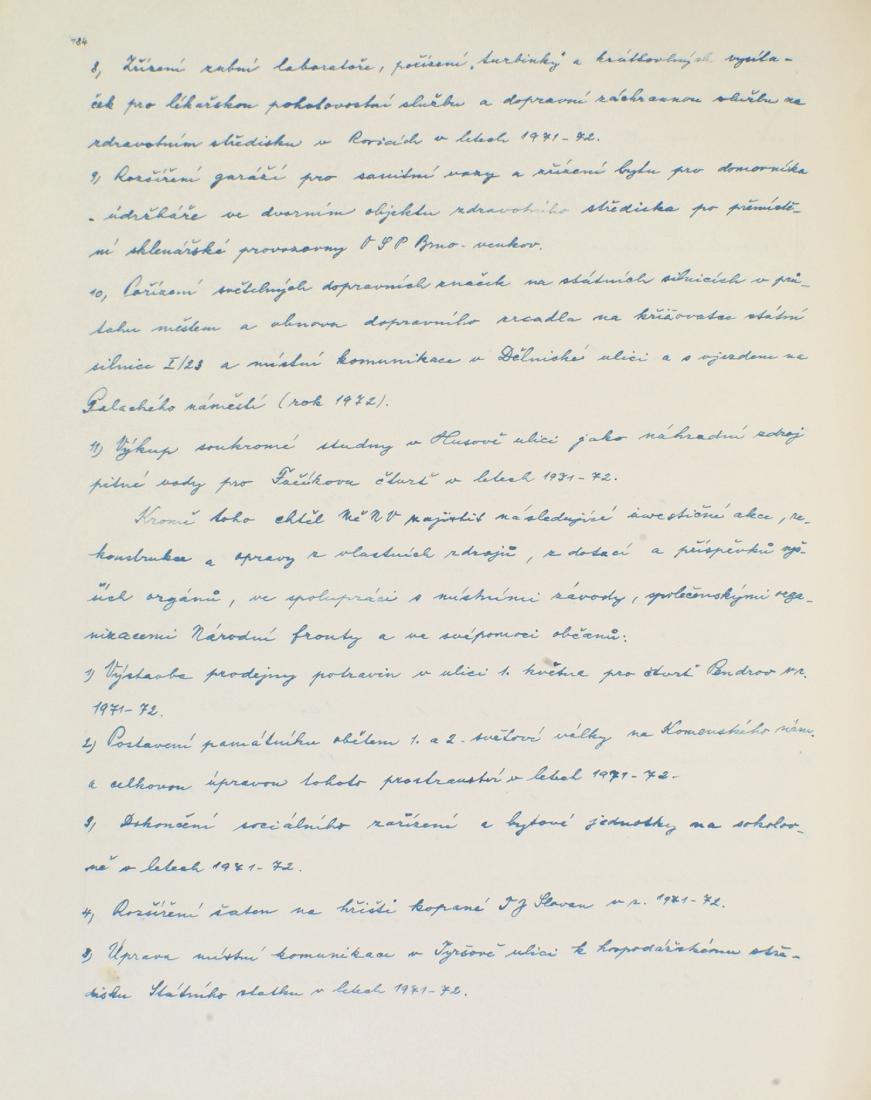 184
8, Zřízení zubní laboratoře, pořízení "turbinky" a krátkovlných vysíla-
ček pro lékařskou pohotovostní službu a dopravní záchrannou službu na
zdravotním středisku v Rosicích v letech 1971-72.
9, Rozšíření garáží pro sanitní vozy a zřízení bytu pro domovníka
- údržbáře ve dvorním objektu zdravotního střediska po přemístě-
ní sklenářské provozovny OSP Brno-venkov.
10, Pořízení světelných dopravních značek na státních silnicích v prů-
tahu městem a obnova dopravního zrcadla na křižovatce státní
silnice I/23 a místní komunikace v Dělnické ulici a s vjezdem na
Palackého náměstí (rok 1972).
11) Výkup soukromé studny v Husově ulici jako náhradní zdroj
pitné vody pro Fučíkovu čtvrť v letech 1971-72.
Kromě toho chtěl MěNV zajistit následující investiční akce, re-
konstrukce a opravy z vlastních zdrojů, z dotací a příspěvků vyš-
ších orgánů, ve spolupráci s místními závody, společenskými orga-
nizacemi Národní fronty a ve svépomoci občanů:
1) Výstavba prodejny potravin v ulici 1. května pro čtvrť Pendrov v r.
1971-72.
2) Postavení památníku obětem 1. a 2. světové války na Komenského nám.
a celkovou úpravou tohoto prostranství v letech 1971-72.
3, Dokončení sociálního zařízení a bytové jednotky na sokolov-
ně v letech 1971-72.
4, Rozšíření šaten na hřišti kopané TJ Slovan v r. 1971-72.
5) Úprava místní komunikace v Tyršově ulici k hospodářskému stře-
disku Státního statku v letech 1971-72.